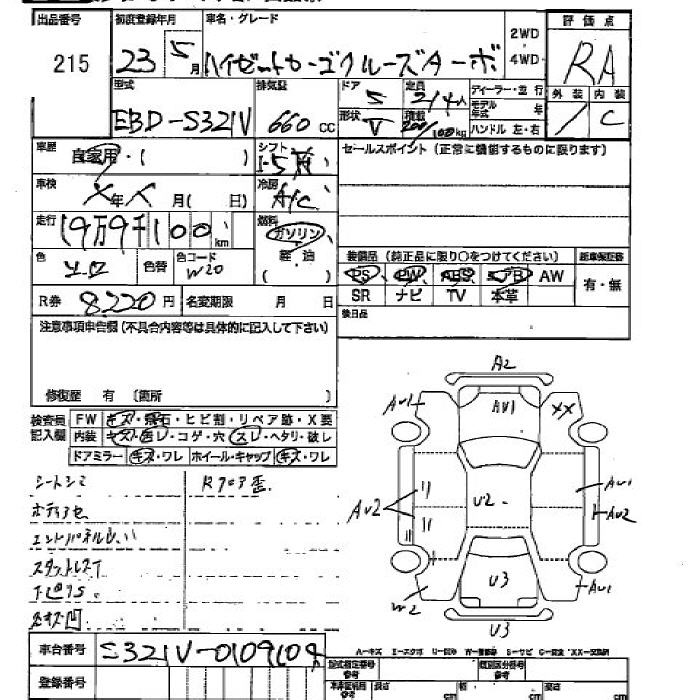 出品番号 初度登録年月 車名・グレード 2WD 4WD 評価点
215 23 5月 ハイゼットカーゴクルーズターボ RA
型式 排気量 ドア 定員 ディーラー・並行 外装 内装
EBD-S321V 660 cc 5 2/4人 モデル年式 年 C
形状 V 積載 200/100kg ハンドル 左・右
車歴 自家用・( ) シフト セールスポイント (正常に機能するものに限ります)
車検 年 月( 日) 冷房 A/C
走行 19万9千100km 燃料 ガソリン
色 シロ 色替 色コード W20 ( 軽・油 ) 装備品 (純正品に限り○をつけてください) 新車保証書
PS PW ABS エアB AW 有・無
R券 8220円 名変期限 月 日 SR ナビ TV 本革
注意事項申告欄(不具合内容等は具体的に記入して下さい) 後日品
修復歴 有 〔箇所 〕
検査員記入欄 FW キズ・飛石・ヒビ割・リペア跡・X要
内装 キズ・色レ・コゲ・穴 スレ・ヘタリ・破レ
ドアミラー キズ・ワレ ホイール・キャップ キズ・ワレ
シートシミ Rフロア歪
A2
AU1 AU1 XX
AU2 U2 AU1
AU2
W2 U3 AU1
U3
車台番号 S321V-0109109
A-キズ E-エクボ U-凹み W-補修跡 S-サビ C-腐食 XX-交換済
登録番号 型式指定番号 参考 類別区分番号 参考
長さ cm 幅 cm 高さ cm